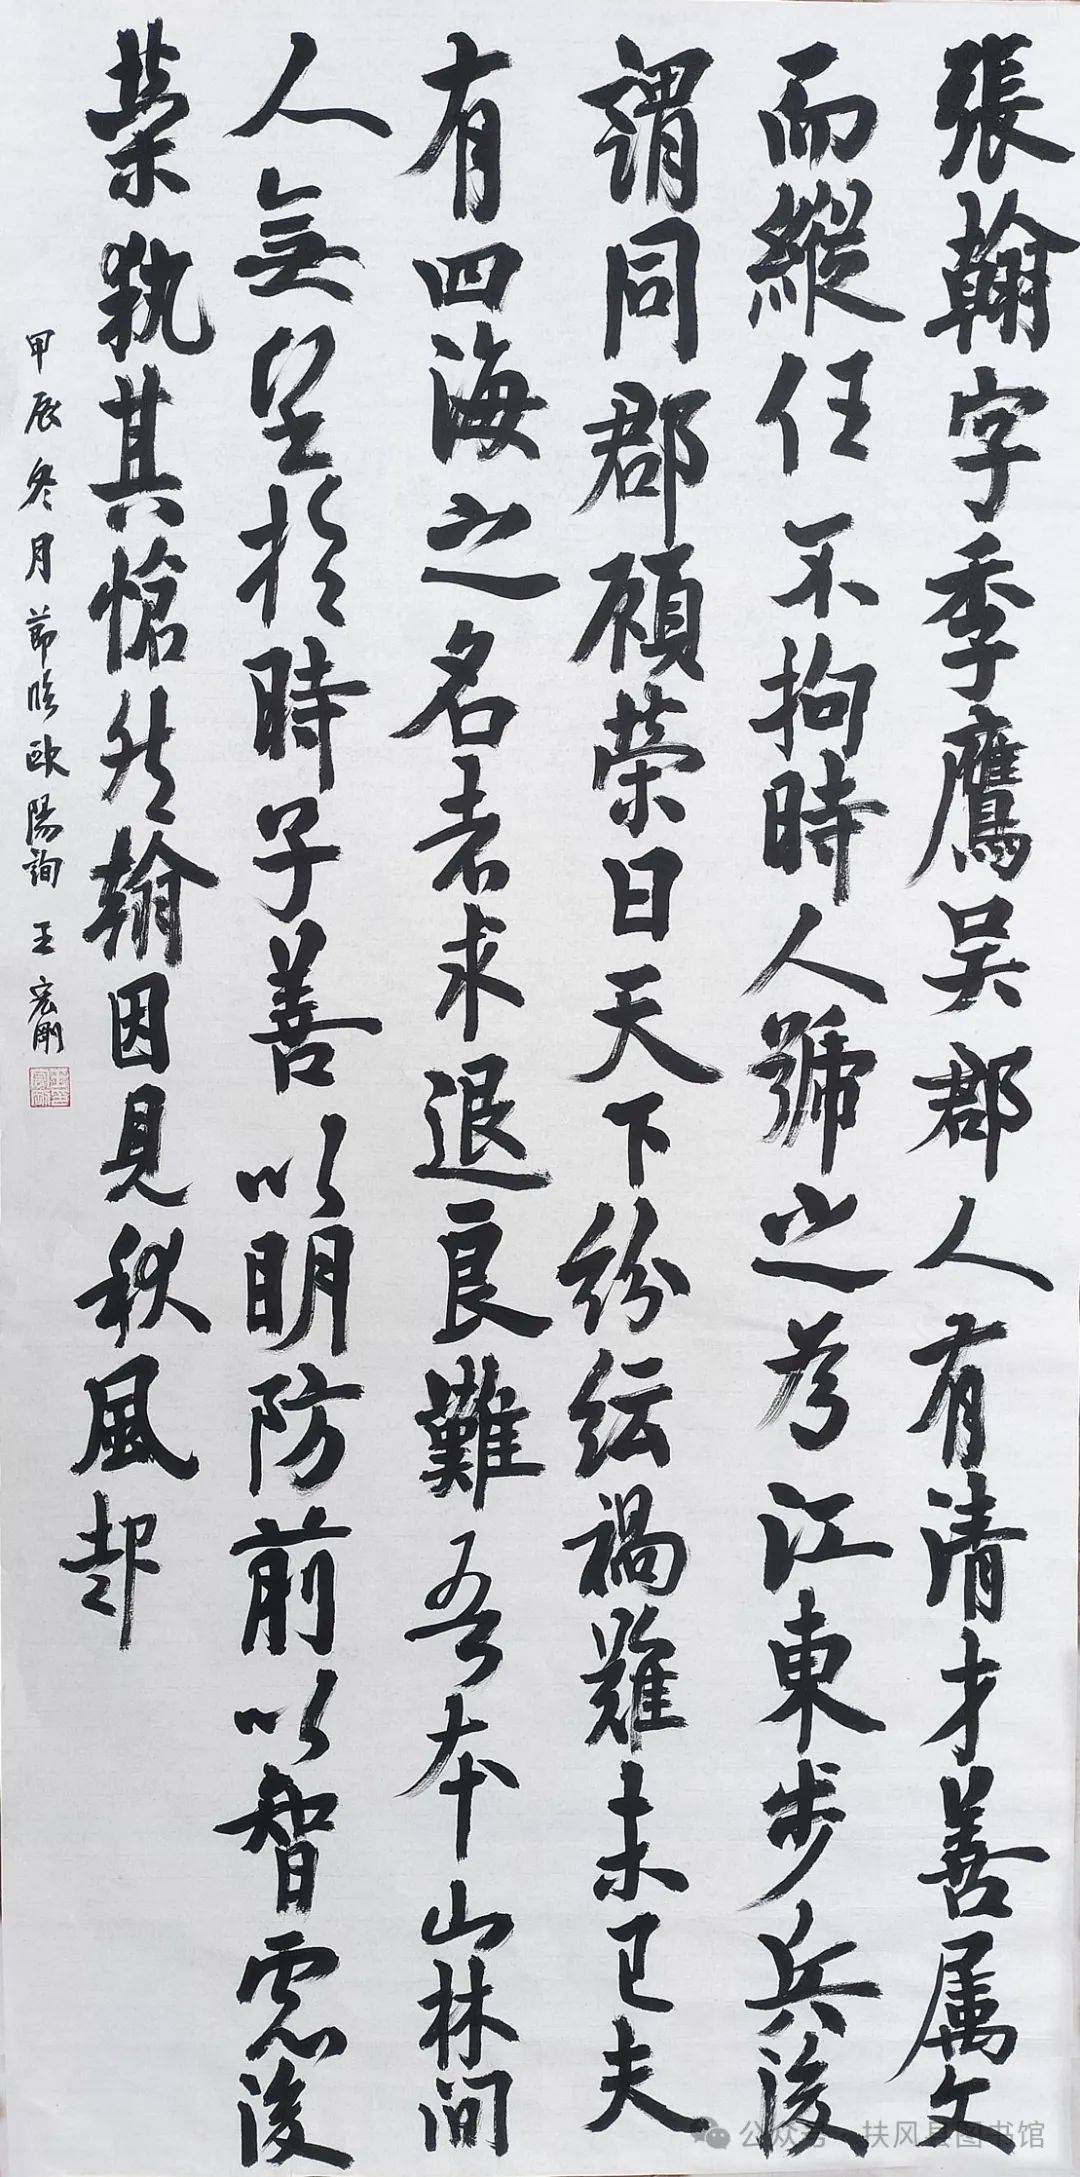 張翰字季鷹吳郡人有清才善属文
而縱任不拘時人號之為江東步兵後
謂同郡顧荣曰天下紛紜禍難未已夫
有四海之名者求退良難吾本山林間
人無望於時子善以明防前以智慮後
荣執其愴然翰因見秋風起
甲辰冬月節臨欧陽詢 王宏剛
公众号·扶风县图书馆